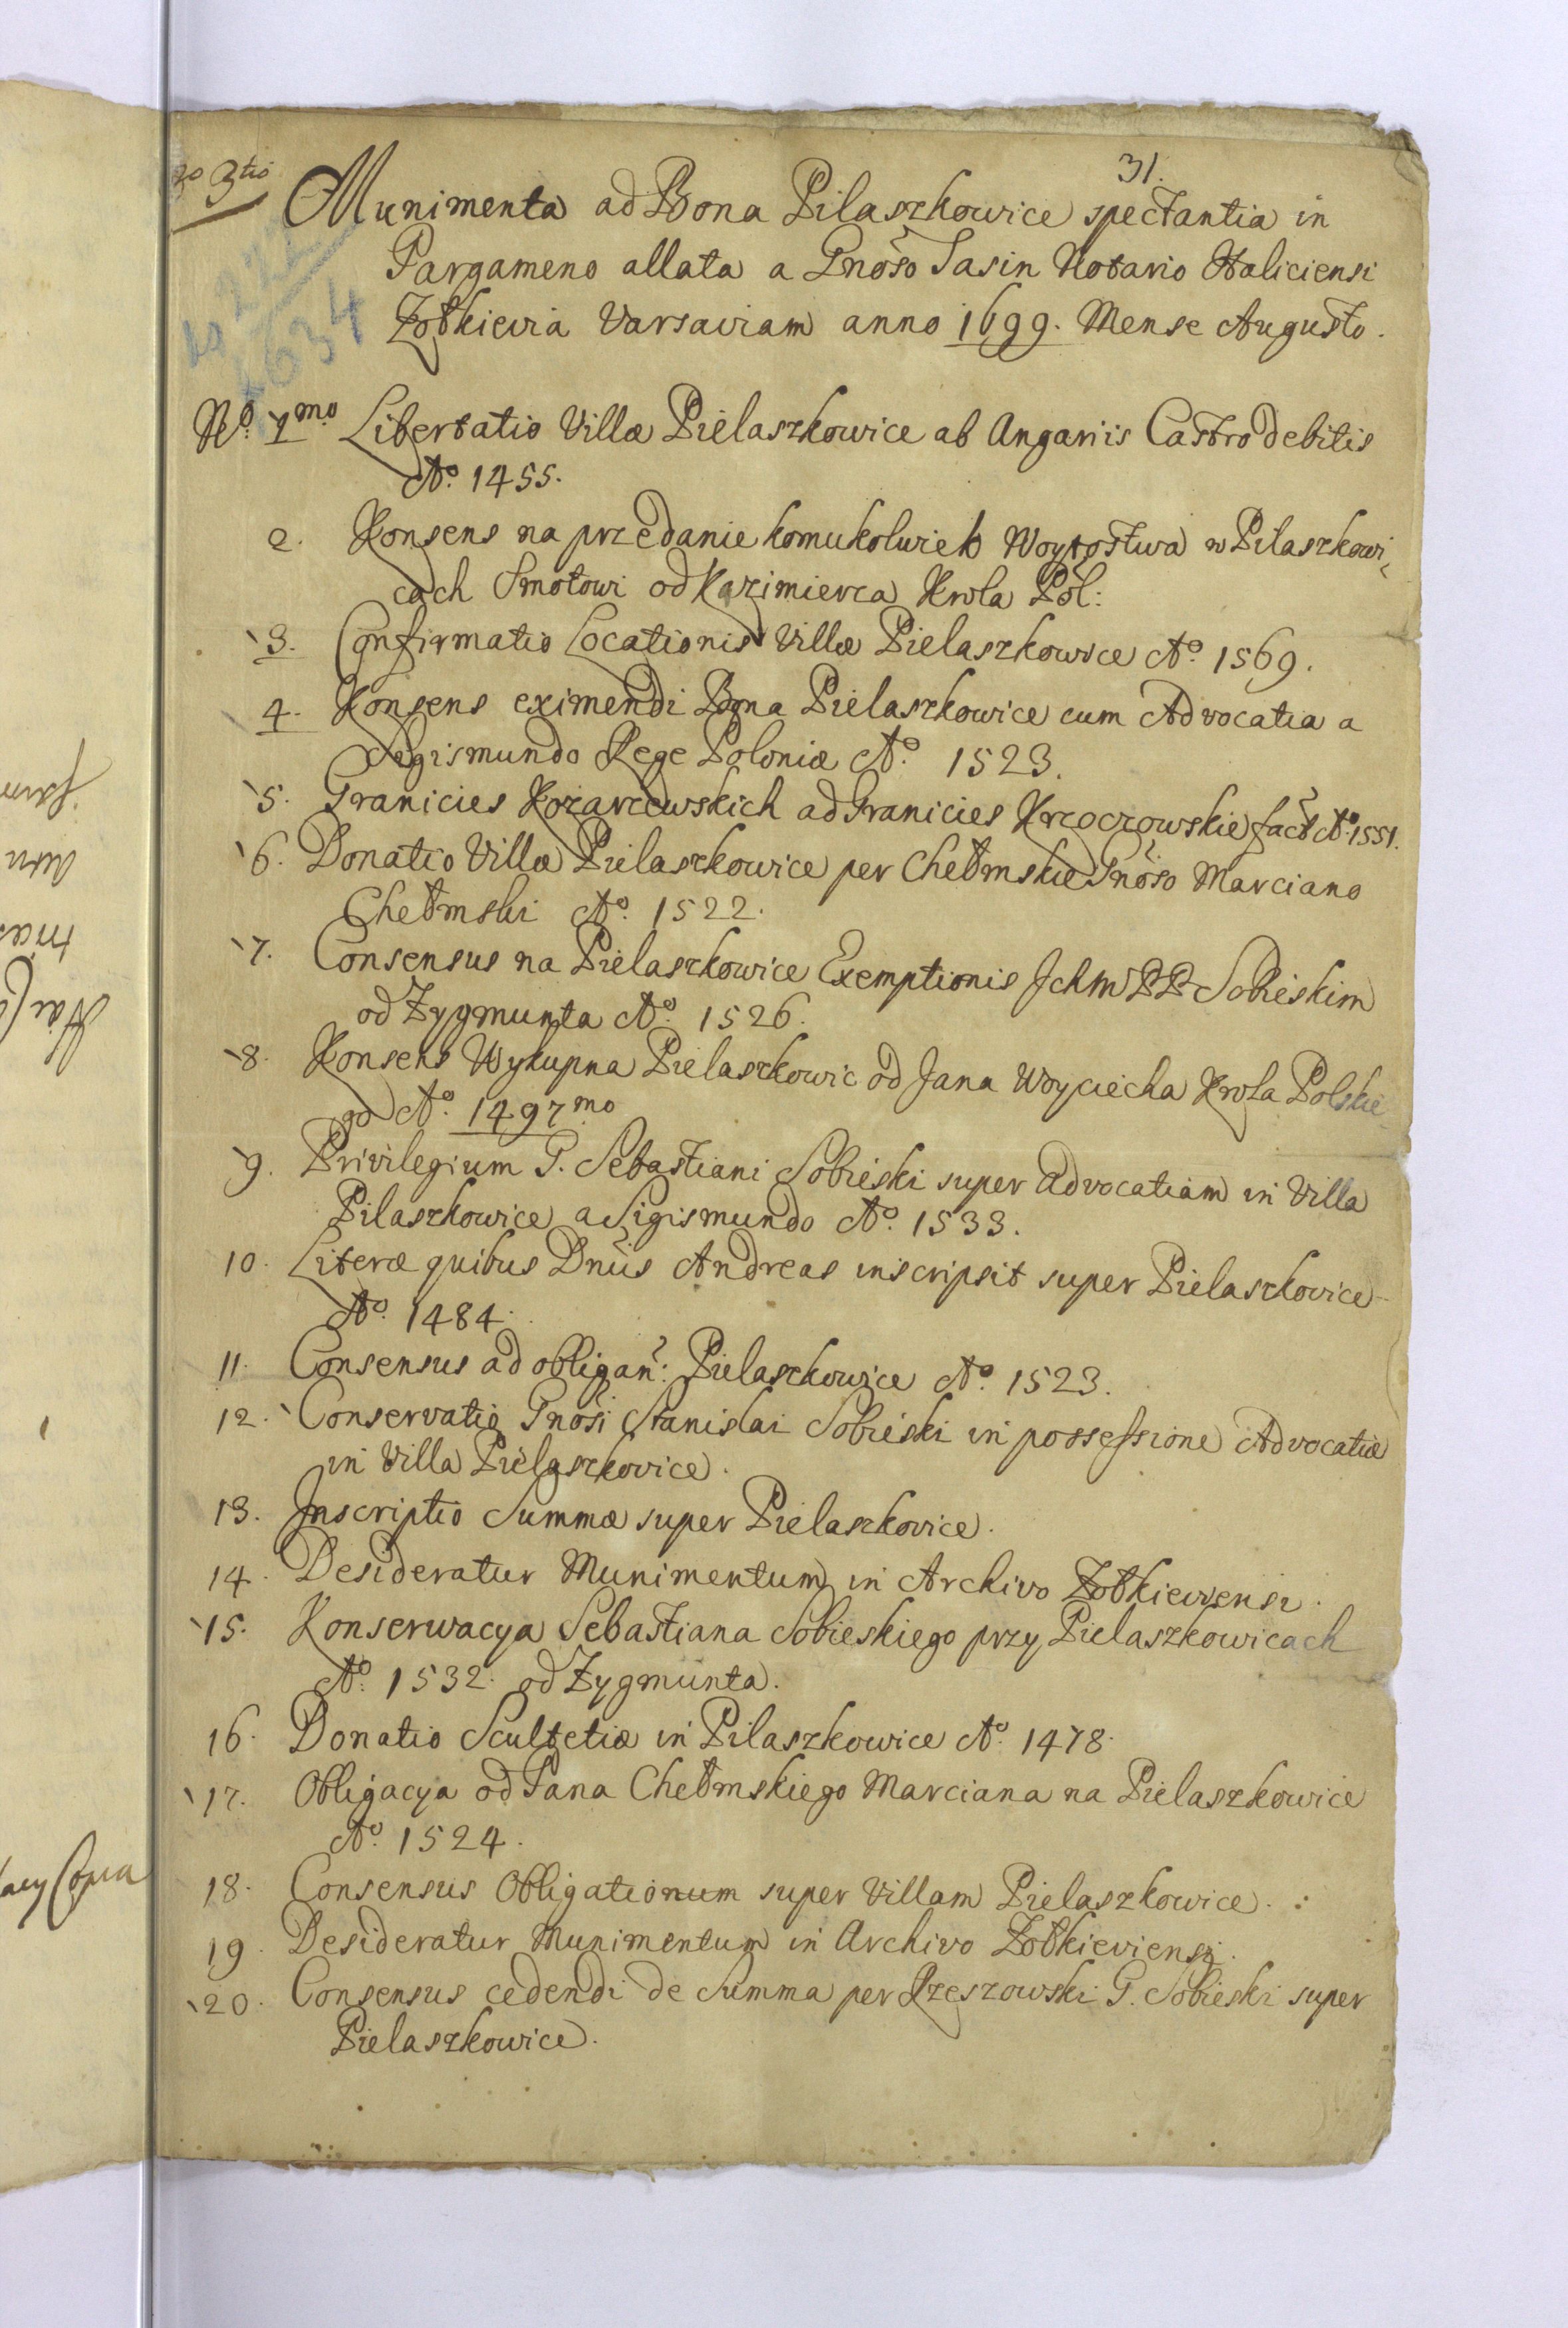 31.
3tio
Munimenta ad Bona Pilaszkowice spectantia in
Pargameno allata a Gnoso Sasin Notario Haliciensi
Żołkievia Varsaviam anno 1699. Mense Augusto.
No. 1mo Libertatio Villæ Pielaszkowice ab Angariis Castro debitis
Ao. 1455.
2. Konsens na przedanie komukolwiek Woytostwa w Pilaszkowi-
cach Smotowi od Kazimierza Krola Pol:
3. Confirmatio Locationis Villæ Pielaszkowice Ao. 1569.
4. Konsens eximendi Bona Pielaszkowice cum Advocatia a
Sigismundo Rege Poloniæ Ao. 1523.
5. Granicies Kozarzewskich ad Granicies Krzoczowskie fact Ao. 1551.
6. Donatio Villæ Pielaszkowice per Chełmskie Gnoso Marciano
Chełmski Ao. 1522.
7. Consensus na Pielaszkowice Exemptionis Jchm PP Sobieskim
od Zygmunta Ao. 1526.
8. Konsens Wykupna Pielaszkowic od Jana Woyciecha Krola Polskie-
go Ao. 1497mo
9. Privilegium G. Sebastiani Sobieski super Advocatiam in Villa
Pilaszkowice a Sigismundo Ao. 1533.
10. Literæ quibus Dnus Andreas inscripsit super Pielaszkovice
Ao. 1484.
11. Consensus ad obligan: Pielaszkowice Ao. 1523.
12. Conservatio Gnosi Stanislai Sobieski in possessione Advocatiæ
in Villa Pielaszkovice.
13. Inscriptio Summæ super Pielaszkovice.
14. Desideratur Munimentum in Archivo Żołkieviensi.
15. Konserwacya Sebastiana Sobieskiego przy Pielaszkowicach
Ao. 1532. od Zygmunta.
16. Donatio Scultetiæ in Pilaszkowice Ao. 1478.
17. Obligacya od Pana Chełmskiego Marciana na Pielaszkowice
Ao. 1524.
18. Consensus Obligationum super Villam Pielaszkowice.
19. Desideratur Munimentum in Archivo Żołkieviensi.
20. Consensus cedendi de Summa per Rzeszowski G. Sobieski super
Pielaszkowice.